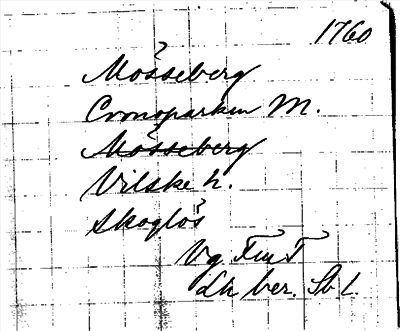 1760
Mösseberg
Cronoparken M.
Mösseberg
Vilske h.
skoglös
Vg. Fm T
Lh ber. Sb 1.